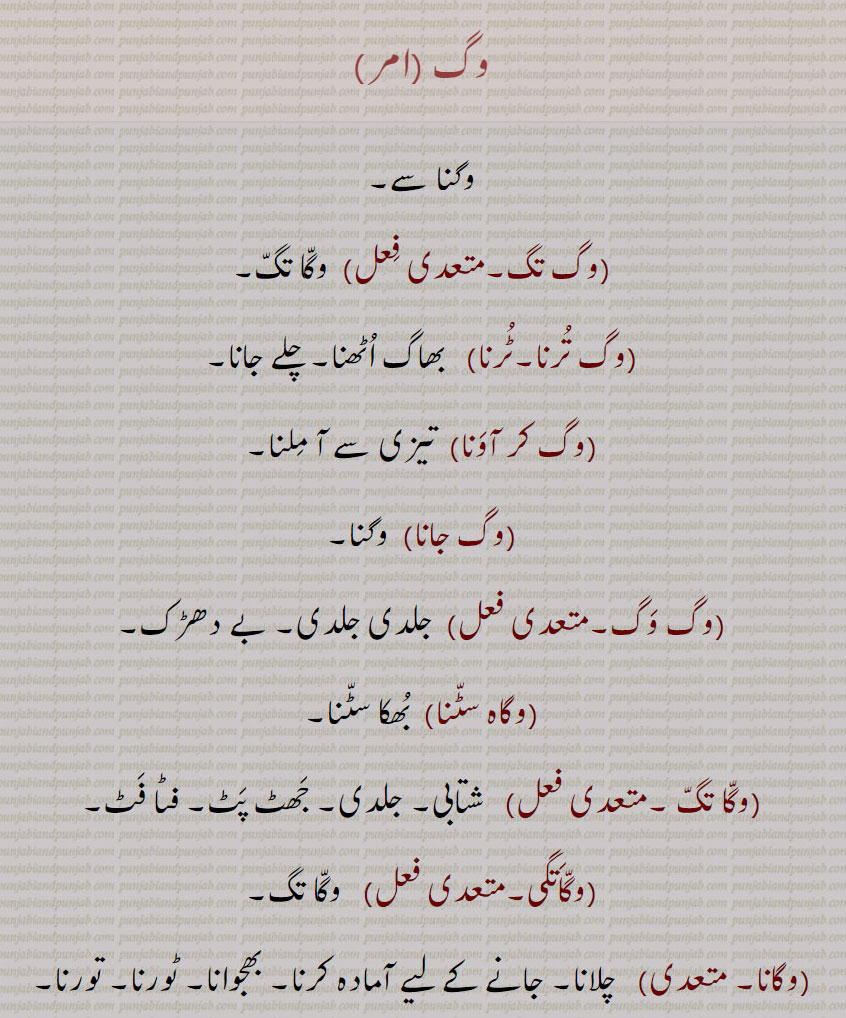 وگ (امر)
وگنا سے۔
(وگ تگ۔متعدی فِعل) وگّا تگّ۔
(وگ تُرنا۔ٹُرنا) بھاگ اُٹھنا۔ چلے جانا۔
(وگ کر آوَنا) تیزی سے آ مِلنا۔
(وگ جانا) وگنا۔
(وگ وَگ۔متعدی فعل) جلدی جلدی۔ بے دھڑک۔
(وگاہ سٹّنا) بُھکا سٹّنا۔
(وگّا تگّ ۔متعدی فعل) شتابی۔ جلدی۔ جَھٹ پَٹ۔ فٹا فَٹ۔
(وگّاتَگی۔متعدی فعل) وگّا تگ۔
(وگانا۔ متعدی) چلانا۔ جانے کے لیے آمادہ کرنا۔ بھجوانا۔ ٹورنا۔ تورنا۔
punjabiandpunjab.com